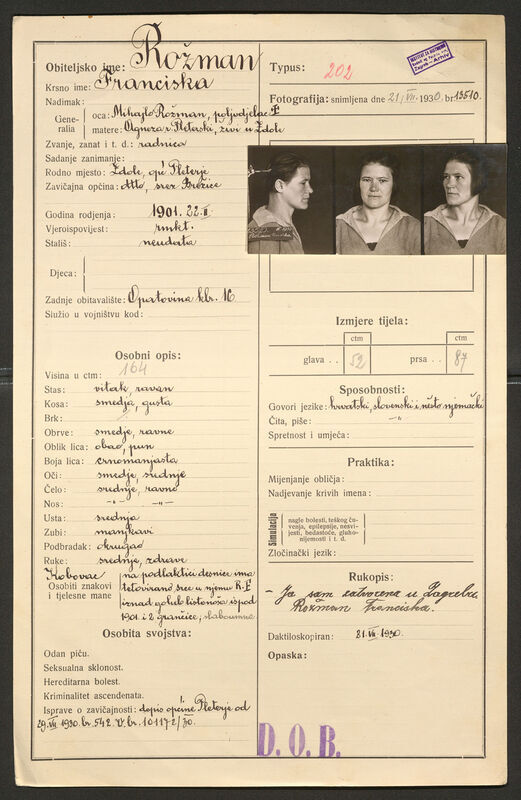 Obiteljsko ime: Rožman
Krsno ime: Franciska
Nadimak:
Generalia
oca: Mihajlo Rožman, poljodjelac
matere: Agneza r. Pleterski, živi u Ždole
Zvanje, zanat i t. d.: radnica
Sadanje zanimanje:
Rodno mjesto: Ždole, opć Pleterje
Zavičajna općina: dtto, srez Brežice
Godina rodjenja: 1901. 22. II.
Vjeroispovijest: rmkt.
Stališ: neudata
Djeca:
Zadnje obitavalište: Opatovina kbr. 16
Služio u vojništvu kod:
Osobni opis:
Visina u ctm: 164
Stas: vitak, ravan
Kosa: smedja, gusta
Brk:
Obrve: smedje, ravne
Oblik lica: obao, pun
Boja lica: crnomanjasta
Oči: smedje, srednje
Čelo: srednje, ravno
Nos: -„- -„-
Usta: srednja
Zubi: manjkavi
Podbradak: okrugao
Ruke: srednje, zdrave
Osobiti znakovi i tjelesne mane
na podlaktici desnice ima
tetovirano srce u njemu R-F
iznad golub listonoša ispod
1901. i 2 grančice, slaboumna
Osobita svojstva:
Odan piću.
Seksualna sklonost.
Hereditarna bolest.
Kriminalitet ascendenata.
Isprave o zavičajnosti: dopis općine Pleterje od
29. VII. 1930. br. 542. br. 10117-2/30.
Typus: 202
Arhiv
Fotografija: snimljena dne 21. VII. 1930. br 13510.
Izmjere tijela:
ctm
ctm
glava . . 52
prsa . . 87
Sposobnosti:
Govori jezike: hrvatski, slovenski i nešto njemački
Čita, piše: -„-
Spretnost i umjeća:
Praktika:
Mijenjanje obličja:
Nadjevanje krivih imena:
Simulacija
nagle bolesti, teškog ču-
venja, epilepsije, nesvi-
jesti, bedastoće, gluho-
nijemosti i t. d.
Zločinački jezik:
Rukopis:
Ja sam zatvorena u Zagrebu
Rožman Franciska.
Daktiloskopiran: 21. VII. 1930.
Opaska:
D. O. B.